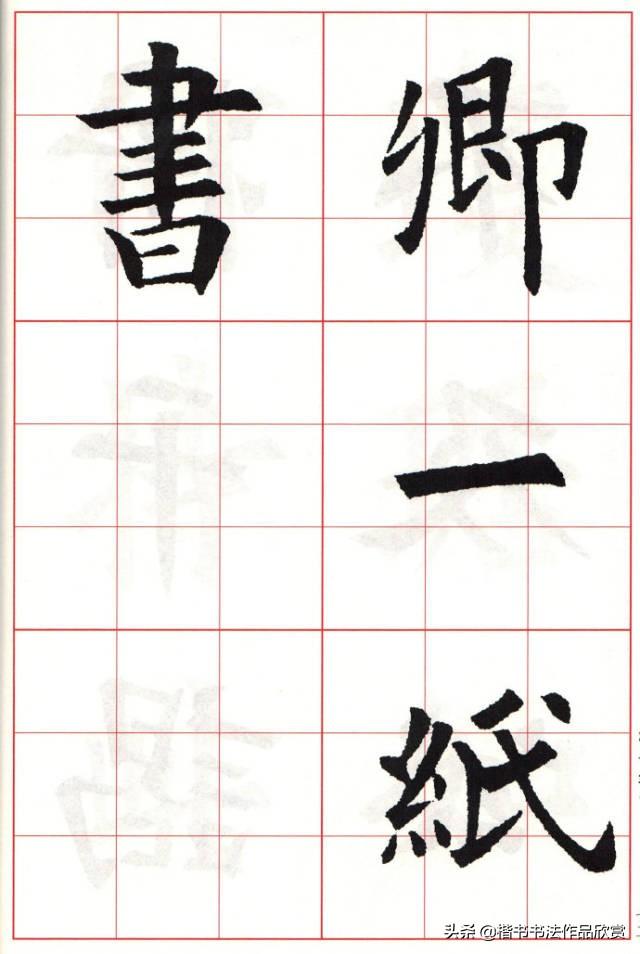 卿一紙
書
头条 @楷书书法作品欣赏